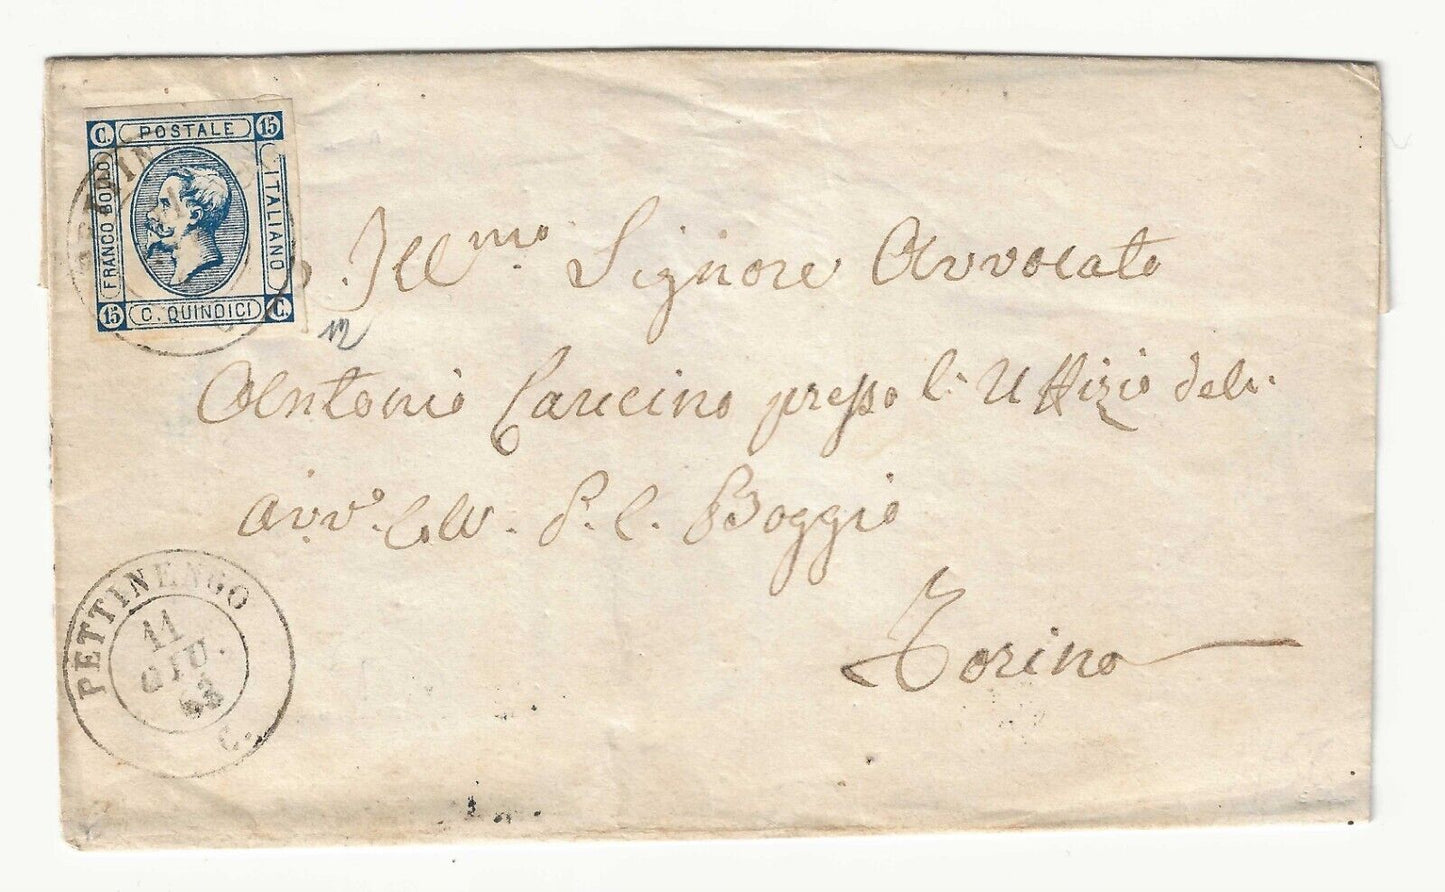 C. POSTALE 15
FRANCO BOLLO
ITALIANO
15 C. QUINDICI C.
Ill.mo Signore Avvocato
Antonio presso l' Uffizio del
avv.o P. C. Boggio
Torino
PETTINENGO
11
GIU.
63
C.